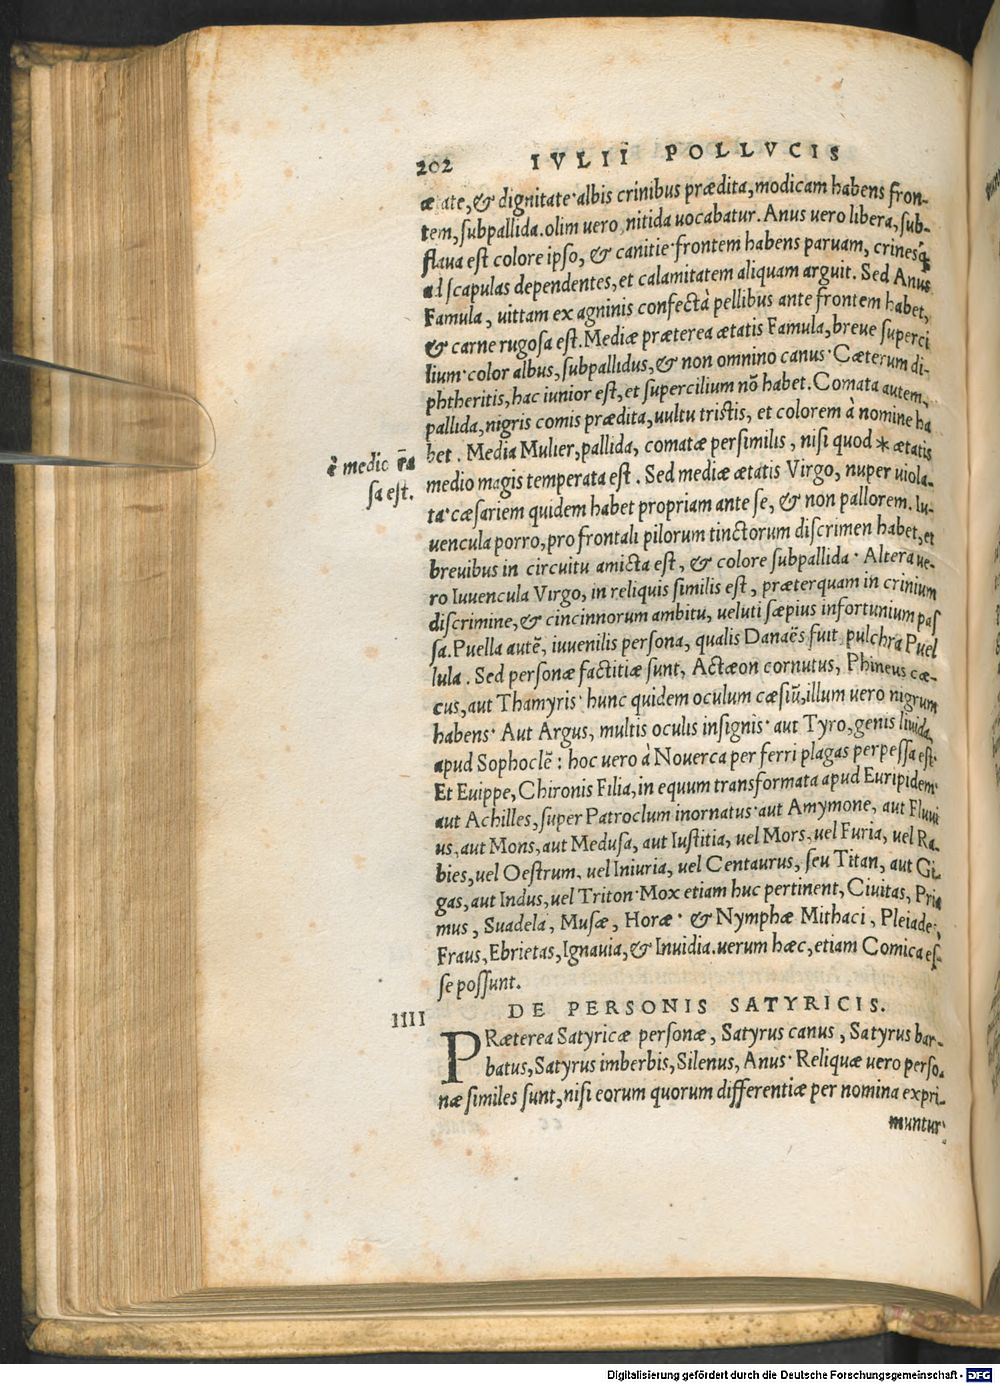 202 IVLII POLLVCIS
ætate, & dignitate·albis crinibus prædita, modicam habens fron-
tem, subpallida. olim uero nitida uocabatur. Anus uero libera, sub-
flaua est colore ipso, & canitie·frontem habens paruam, crinesq́
ad scapulas dependentes, et calamitatem aliquam arguit. Sed Anus
Famula, uittam ex agninis confectà pellibus ante frontem habet,
& carne rugosa est. Mediæ præterea ætatis Famula, breue superci
lium·color albus, subpallidus, & non omnino canus· Cæterum di-
phtheritis, hac iunior est, et supercilium nō habet. Comata autem,
pallida, nigris comis prædita, uultu tristis, et colorem à nomine ha
bet. Media Mulier, pallida, comatæ persimilis, nisi quod * ætatis
è medio rā
sa est.
medio magis temperata est. Sed mediæ ætatis Virgo, nuper uiola-
ta·cæsariem quidem habet propriam ante se, & non pallorem. Iu-
uencula porro, pro frontali pilorum tinctorum discrimen habet, et
breuibus in circuitu amicta est, & colore subpallida· Altera ue-
ro Iuuencula Virgo, in reliquis similis est, præterquam in crinium
discrimine, & cincinnorum ambitu, ueluti sæpius infortunium pas
sa. Puella autē, iuuenilis persona, qualis Danaës fuit pulchra Puel
lula. Sed personæ factitiæ sunt, Actæon cornutus, Phineus cæ-
cus, aut Thamyris· hunc quidem oculum cæsiū, illum uero nigrum
habens· Aut Argus, multis oculis insignis· aut Tyro, genis liuida,
apud Sophoclē: hoc uero à Nouerca per ferri plagas perpessa est·
Et Euippe, Chironis Filia, in equum transformata apud Euripidem·
aut Achilles, super Patroclum inornatus·aut Amymone, aut Fluui
us, aut Mons, aut Medusa, aut Iustitia, uel Mors, uel Furia, uel Ra-
bies, uel Oestrum, uel Iniuria, uel Centaurus, seu Titan, aut Gi-
gas, aut Indus, uel Triton·Mox etiam huc pertinent, Ciuitas, Pria
mus, Suadela, Musæ, Horæ· & Nymphæ Mithaci, Pleiades,
Fraus, Ebrietas, Ignauia, & Inuidia. uerum hæc, etiam Comica es-
se possunt.
IIII DE PERSONIS SATYRICIS.
PRæterea Satyricæ personæ, Satyrus canus, Satyrus bar-
batus, Satyrus imberbis, Silenus, Anus· Reliquæ uero perso-
næ similes sunt, nisi eorum quorum differentiæ per nomina expri-
muntur
Digitalisierung gefördert durch die Deutsche Forschungsgemeinschaft - DFG